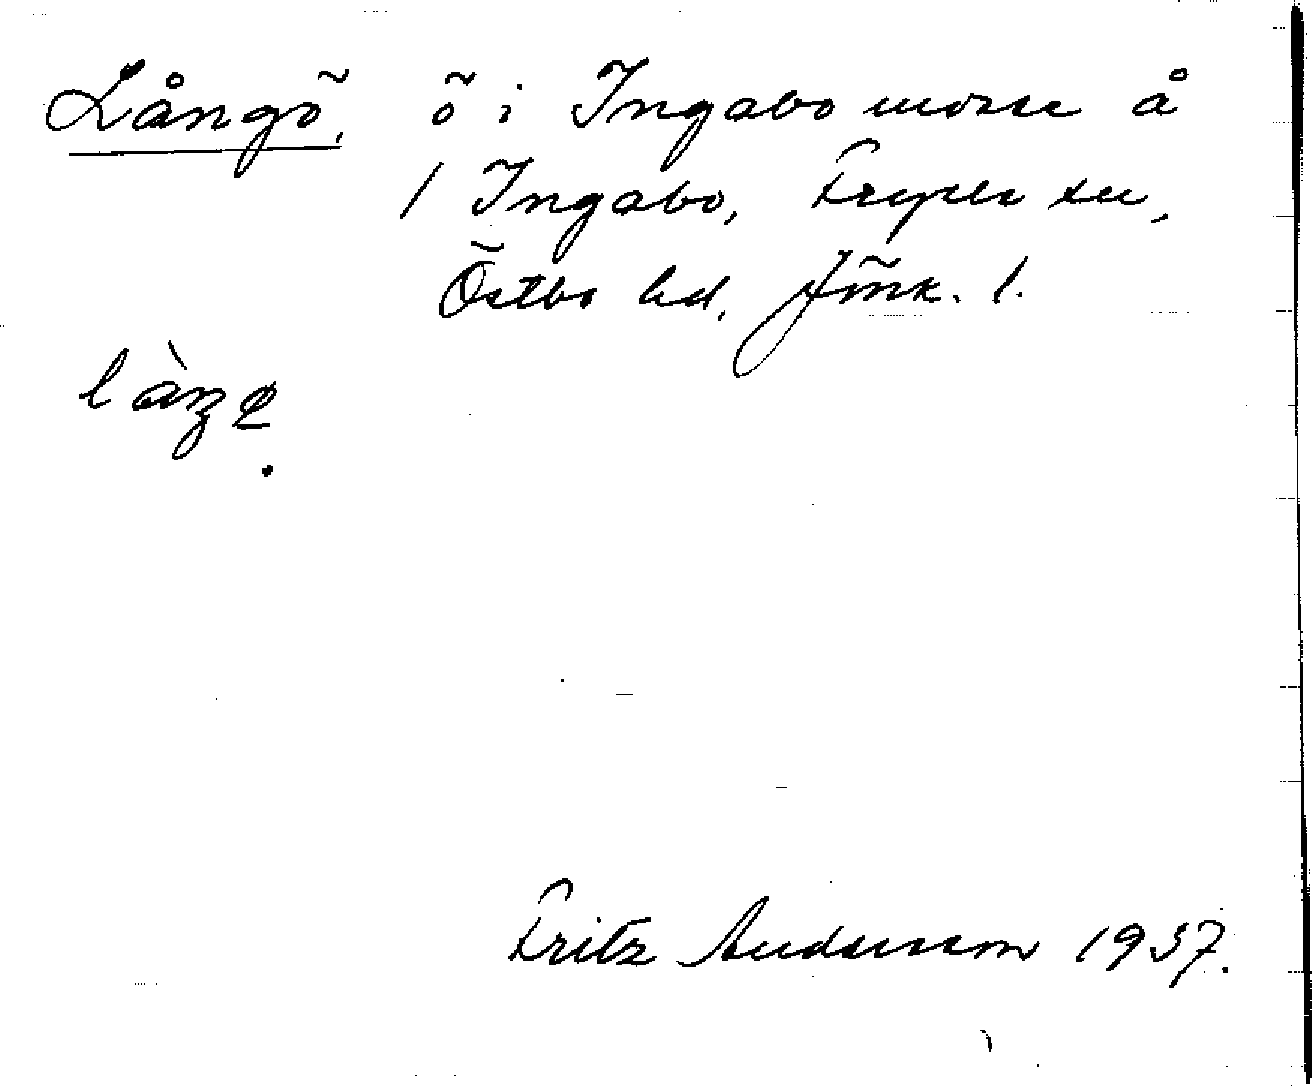 Långö, ö i Ingabo mosse å
1 Ingabo, Fryele sn,
Östbo hd, Jönk. l.
Fritz Andersson 1937.